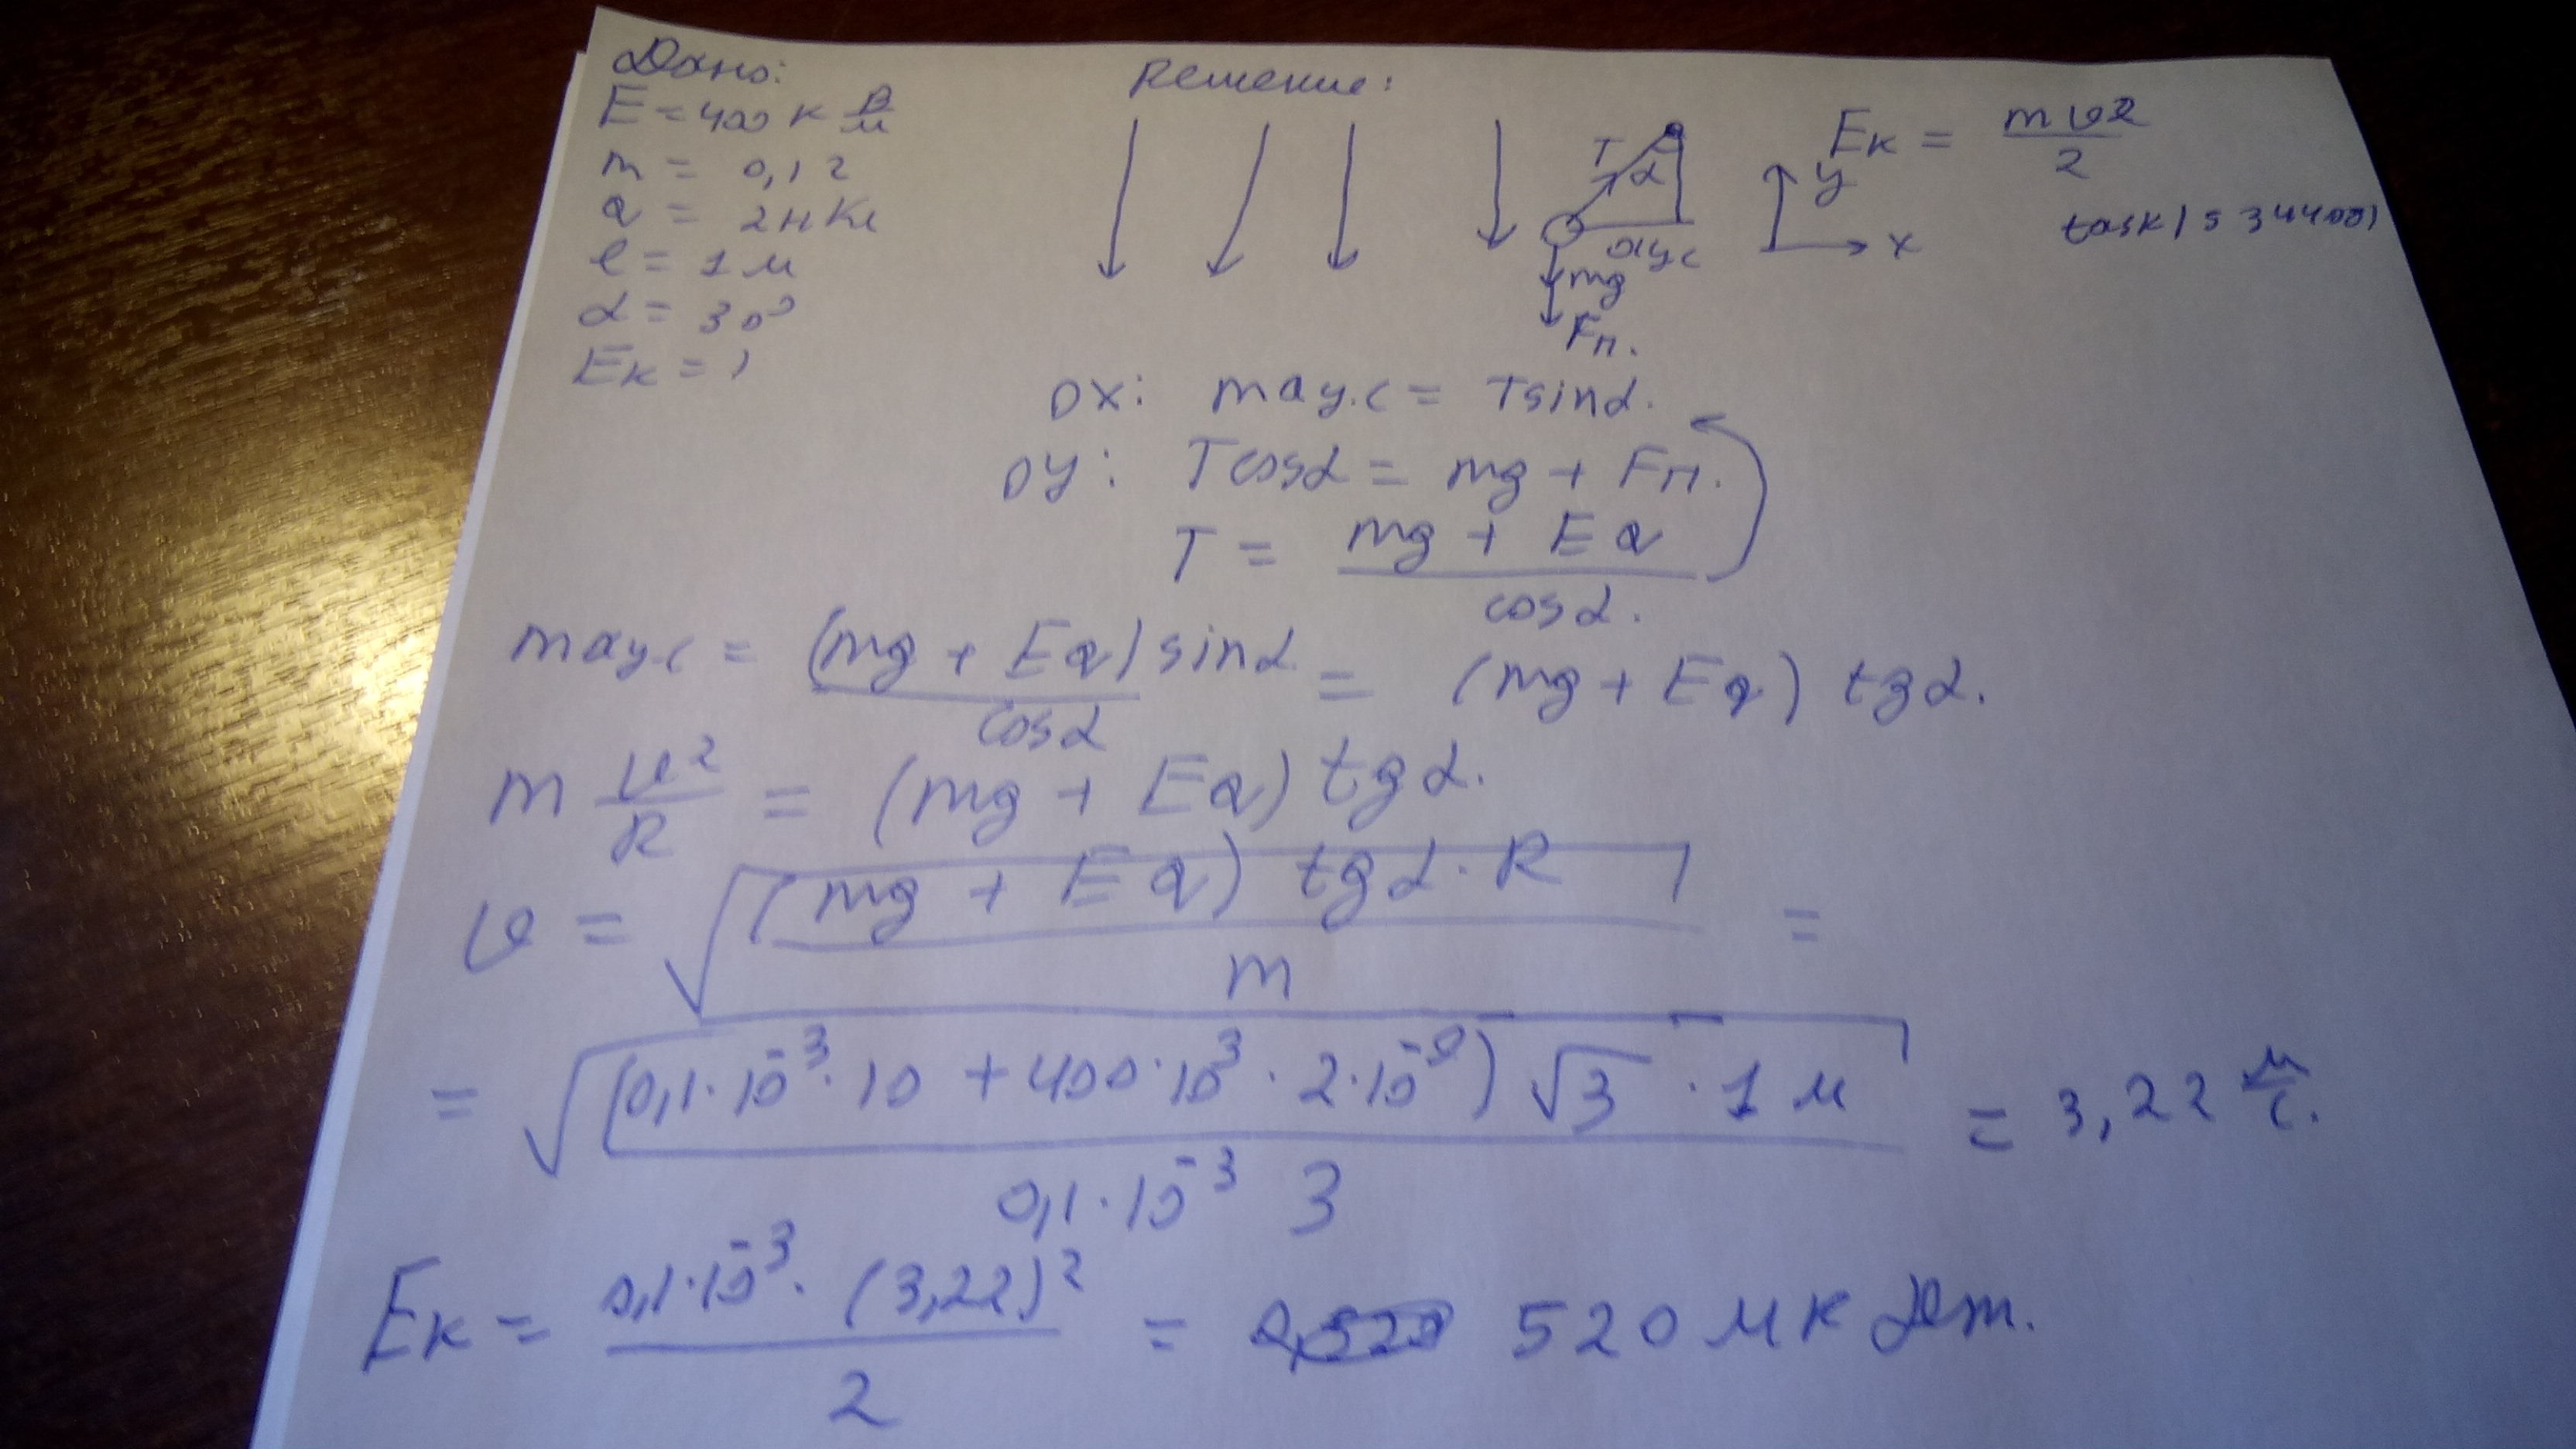 Дано:
E = 400 к В/м
m = 0,1 г
q = 2 н Кл
l = 1 м
α = 30°
Eк = ?
Решение:
T
α
aц.с
mg
Fп.
y
x
Eк = mv²/2
task/5344001
OX: maц.с = Tsinα.
OY: Tcosα = mg + Fп.
T = (mg + Eq)/cosα.
maц.с = (mg + Eq) sinα/cosα = (mg + Eq) tgα.
m v²/R = (mg + Eq) tgα.
v = √((mg + Eq) tgα · R / m) =
= √((0,1·10⁻³·10 + 400·10³·2·10⁻⁹) √3 · 1 м / 0,1·10⁻³ 3) = 3,22 м/с.
Eк = 0,1·10⁻³·(3,22)²/2 = 520 мк Дж.